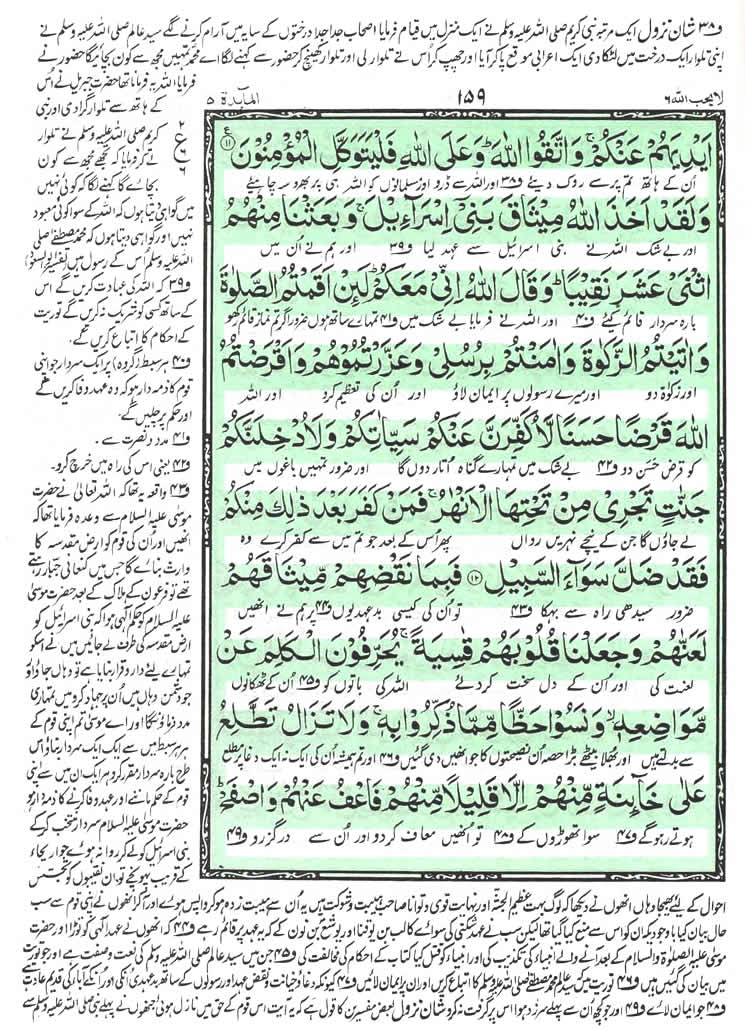 و۳۸ شان نزول ایک مرتبہ نبی کریم صلی اللہ علیہ وسلم نے ایک منزل میں قیام فرمایا اصحاب جدا جدا درختوں کے سایہ میں آرام کرنے لگے سید عالم صلی اللہ علیہ وسلم نے
اپنی تلوار ایک درخت میں لٹکا دی ایک اعرابی موقع پا کر آیا اور چھپ کر اُس نے تلوار لی اور تلوار کھینچ کر حضور سے کہنے لگا اے محمد تمہیں مجھ سے کون بچائیگا حضور نے
لا يحب الله ۶
۱۵۹
المآىدة ۵
اَيْدِيَهُمْ عَنْكُمْ ۚ وَاتَّقُوا اللّٰهَ ؕ وَعَلَى اللّٰهِ فَلْيَتَوَكَّلِ الْمُؤْمِنُوْنَ ۝۱۱
اُن کے ہاتھ تم پر سے روک دیئے و۳۸ اور اللہ سے ڈرو اور مسلمانوں کو اللہ ہی پر بھروسہ چاہیئے
وَلَقَدْ اَخَذَ اللّٰهُ مِيْثَاقَ بَنِىْٓ اِسْرَآءِيْلَ ۚ وَبَعَثْنَا مِنْهُمُ
اور بے شک اللہ نے بنی اسرائیل سے عہد لیا و۳۹ اور ہم نے اُن میں
اثْنَىْ عَشَرَ نَقِيْبًا ؕ وَقَالَ اللّٰهُ اِنِّىْ مَعَكُمْ ؕ لَئِنْ اَقَمْتُمُ الصَّلٰوةَ
بارہ سردار قائم کیئے و۴۰ اور اللہ نے فرمایا بے شک میں و۴۱ تمہارے ساتھ ہوں ضرور اگر تم نماز قائم رکھو
وَاٰتَيْتُمُ الزَّكٰوةَ وَاٰمَنْتُمْ بِرُسُلِىْ وَعَزَّرْتُمُوْهُمْ وَاَقْرَضْتُمُ
اور زکوٰۃ دو اور میرے رسولوں پر ایمان لاؤ اور اُن کی تعظیم کرو اور اللہ
اللّٰهَ قَرْضًا حَسَنًا لَّاُكَفِّرَنَّ عَنْكُمْ سَيِّاٰتِكُمْ وَلَاُدْخِلَنَّكُمْ
کو قرض حسن دو و۴۲ بے شک میں تمہارے گناہ اُتار دوں گا اور ضرور تمہیں باغوں میں
جَنّٰتٍ تَجْرِىْ مِنْ تَحْتِهَا الْاَنْهٰرُ ۚ فَمَنْ كَفَرَ بَعْدَ ذٰلِكَ مِنْكُمْ
لے جاؤں گا جن کے نیچے نہریں رواں پھر اُس کے بعد جو تم میں سے کفر کرے وہ
فَقَدْ ضَلَّ سَوَآءَ السَّبِيْلِ ۝۱۲ فَبِمَا نَقْضِهِمْ مِّيْثَاقَهُمْ
ضرور سیدھی راہ سے بہکا و۴۳ تو اُن کی کیسی بدعہدیوں و۴۴ پر ہم نے انھیں
لَعَنّٰهُمْ وَجَعَلْنَا قُلُوْبَهُمْ قٰسِيَةً ۚ يُحَرِّفُوْنَ الْكَلِمَ عَنْ
لعنت کی اور اُن کے دل سخت کر دئے اللہ کی باتوں کو و۴۵ اُن کے ٹھکانوں
مَّوَاضِعِهٖ ۙ وَنَسُوْا حَظًّا مِّمَّا ذُكِّرُوْا بِهٖ ۚ وَلَا تَزَالُ تَطَّلِعُ
سے بدلتے ہیں اور بھلا بیٹھے بڑا حصہ اُن نصیحتوں کا جو انھیں دی گئیں و۴۶ اور تم ہمیشہ اُن کی ایک نہ ایک دغا پر مطلع
عَلٰى خَآئِنَةٍ مِّنْهُمْ اِلَّا قَلِيْلًا مِّنْهُمْ فَاعْفُ عَنْهُمْ وَاصْفَحْ ؕ
ہوتے رہو گے و۴۷ سوا تھوڑوں کے و۴۸ تو انھیں معاف کر دو اور اُن سے درگزرو و۴۹
فرمایا اللہ یہ فرمانا تھا حضرت جبریل نے اُس
کے ہاتھ سے تلوار گرا دی اور نبی
کریم صلی اللہ علیہ وسلم نے تلوار
لے کر فرمایا کہ تجھے مجھ سے کون
بچائے گا کہنے لگا کہ کوئی نہیں
میں گواہی دیتا ہوں کہ اللہ کے سوا کوئی معبود
نہیں اور گواہی دیتا ہوں کہ محمد مصطفےٰ صلی
اللہ علیہ وسلم اُس کے رسول ہیں (تفسیر ابو السعود)
و۳۹ کہ اللہ کی عبادت کریں گے اُس
کے ساتھ کسی کو شریک نہ کریں گے توریت
کے احکام کا اتباع کریں گے۔
و۴۰ ہر سبط (گروہ) پر ایک سردار جو اپنی
قوم کا ذمہ دار ہو کہ وہ عہد وفا کریں گے
اور حکم پر چلیں گے۔
و۴۱ مدد و نصرت سے۔
و۴۲ یعنی اُس کی راہ میں خرچ کرو۔
و۴۳ واقعہ یہ تھا کہ اللہ تعالیٰ نے حضرت
موسیٰ علیہ السلام سے وعدہ فرمایا تھا کہ
انھیں اور اُن کی قوم کو ارض مقدسہ کا
وارث بنائے گا جس میں کنعانی جبار رہتے
تھے تو فرعون کے ہلاک کے بعد حضرت موسیٰ
علیہ السلام کو حکم الٰہی ہوا کہ بنی اسرائیل کو
ارض مقدسہ کی طرف لے جائیں میں نے اسکو
تمہارے لئے دار و قرار بنایا ہے تو وہاں جاؤ اور
جو دشمن وہاں ہیں اُن پر جہاد کرو میں تمہاری
مدد فرماؤں گا اور اے موسیٰ تم اپنی قوم کے
ہر ہر سبط میں سے ایک ایک سردار بناؤ اس
طرح بارہ سردار مقرر کرو ہر ایک ان میں سے اپنی
قوم کے حکم ماننے اور عہد وفا کرنے کا ذمہ دار ہو
حضرت موسیٰ علیہ السلام سردار منتخب کر کے
بنی اسرائیل کو لے کر روانہ ہوئے جب اریحاء
کے قریب پہونچے تو ان نقیبوں کو تجسس
احوال کے لئے بھیجا وہاں انھوں نے دیکھا کہ لوگ بہت عظیم الجثہ اور نہایت قوی و توانا صاحب ہیبت و شوکت ہیں یہ اُن سے ہیبت زدہ ہو کر واپس ہوئے اور آ کر انھوں نے اپنی قوم سے سب
حال بیان کیا باوجودیکہ اُن کو اس سے منع کیا گیا تھا لیکن سب نے عہد شکنی کی سوائے کالب بن یوقنا اور یوشع بن نون کے کہ یہ عہد پر قائم رہے و۴۴ کہ انھوں نے عہد الٰہی کو توڑا اور حضرت
موسیٰ علیہ الصلوٰۃ والسلام کے بعد آنے والے انبیاء کی تکذیب کی اور انبیاء کو قتل کیا کتاب کے احکام کی مخالفت کی و۴۵ جن میں سید عالم صلی اللہ علیہ وسلم کی نعت و صفت ہے اور جو توریت
میں بیان کی گئیں ہیں و۴۶ توریت میں کہ سید عالم محمد مصطفےٰ صلی اللہ علیہ وسلم کا اتباع کریں اور ان پر ایمان لائیں و۴۷ کیونکہ دغا و خیانت و نقض عہد اور رسولوں کے ساتھ بد عہدی اُنکی اور اُنکے آبا کی قدیم عادت ہے
و۴۸ جو ایمان لائے و۴۹ اور جو کچھ اُن سے پہلے سرزد ہوا اس پر گرفت نہ کرو شان نزول بعض مفسرین کا قول ہے کہ یہ آیت اس قوم کے حق میں نازل ہوئی جنھوں نے پہلے نبی صلی اللہ علیہ وسلم سے